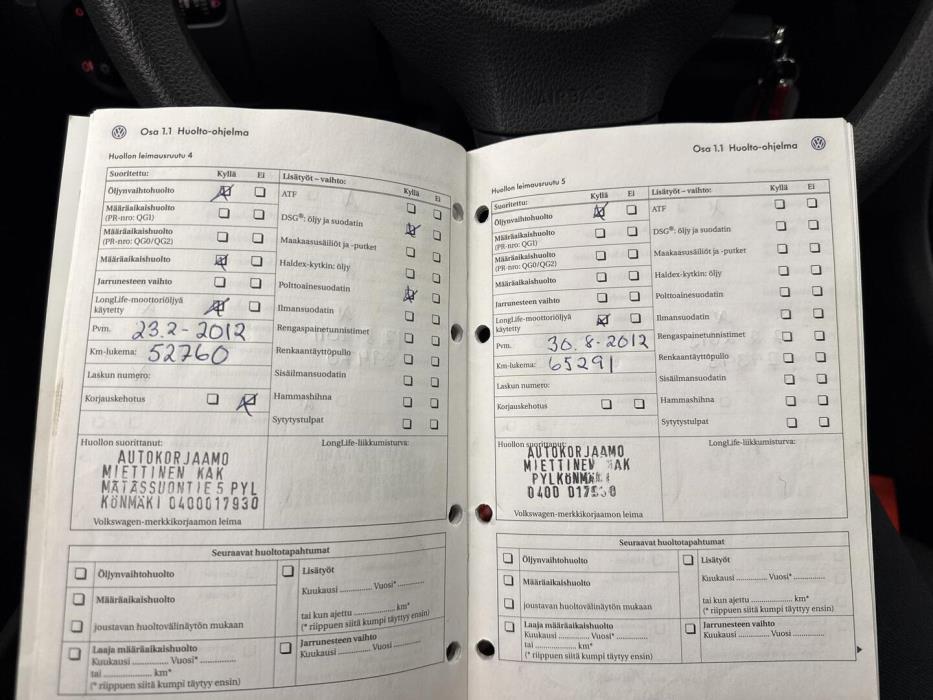 Osa 1.1 Huolto-ohjelma
Huollon leimausruutu 4
Suoritettu: Kyllä Ei
Öljynvaihtohuolto
Määräaikaishuolto
(PR-nro: QG1)
Määräaikaishuolto
(PR-nro: QG0/QG2)
Määräaikaishuolto
Jarrunesteen vaihto
LongLife-moottoriöljyä
käytetty
Pvm. 23.2-2012
Km-lukema: 52760
Laskun numero:
Korjauskehotus
Lisätyöt – vaihto: Kyllä Ei
ATF
DSG®: öljy ja suodatin
Maakaasusäiliöt ja -putket
Haldex-kytkin: öljy
Polttoainesuodatin
Ilmansuodatin
Rengaspainetunnistimet
Renkaantäyttöpullo
Sisäilmansuodatin
Hammashihna
Sytytystulpat
Huollon suorittanut:
AUTOKORJAAMO
MIETTINEN KAK
MÄTÄSSUONTIE 5 PYL
KÖNMÄKI 0400017930
Volkswagen-merkkikorjaamon leima
LongLife-liikkumisturva:
Seuraavat huoltotapahtumat
Öljynvaihtohuolto
Määräaikaishuolto
joustavan huoltovälinäytön mukaan
Laaja määräaikaishuolto
Kuukausi ............. Vuosi* .............
tai .................... km*
(* riippuen siitä kumpi täytyy ensin)
Lisätyöt
Kuukausi ............. Vuosi* .............
tai kun ajettu .................... km*
(* riippuen siitä kumpi täytyy ensin)
Jarrunesteen vaihto
Kuukausi ............. Vuosi .............
Osa 1.1 Huolto-ohjelma
Huollon leimausruutu 5
Suoritettu: Kyllä Ei
Öljynvaihtohuolto
Määräaikaishuolto
(PR-nro: QG1)
Määräaikaishuolto
(PR-nro: QG0/QG2)
Määräaikaishuolto
Jarrunesteen vaihto
LongLife-moottoriöljyä
käytetty
Pvm. 30.8-2012
Km-lukema: 65291
Laskun numero:
Korjauskehotus
Lisätyöt – vaihto: Kyllä Ei
ATF
DSG®: öljy ja suodatin
Maakaasusäiliöt ja -putket
Haldex-kytkin: öljy
Polttoainesuodatin
Ilmansuodatin
Rengaspainetunnistimet
Renkaantäyttöpullo
Sisäilmansuodatin
Hammashihna
Sytytystulpat
Huollon suorittanut:
AUTOKORJAAMO
MIETTINEN KAK
0400
Volkswagen-merkkikorjaamon leima
LongLife-liikkumisturva:
Seuraavat huoltotapahtumat
Öljynvaihtohuolto
Määräaikaishuolto
joustavan huoltovälinäytön mukaan
Laaja määräaikaishuolto
Kuukausi ............. Vuosi* .............
tai .................... km*
(* riippuen siitä kumpi täytyy ensin)
Lisätyöt
Kuukausi ............. Vuosi* .............
tai kun ajettu .................... km*
(* riippuen siitä kumpi täytyy ensin)
Jarrunesteen vaihto
Kuukausi ............. Vuosi .............